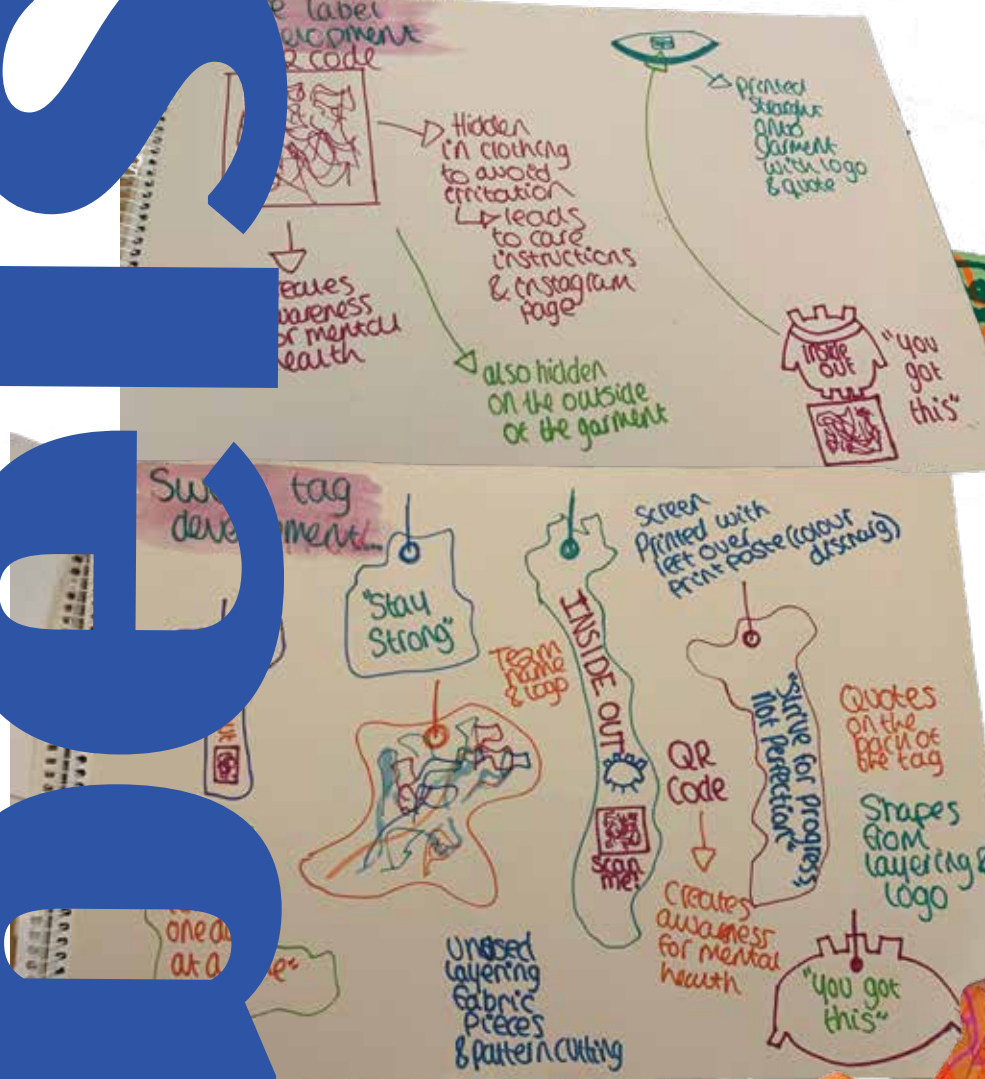 label
QR code
Hidden
in clothing
to avoid
irritation
leads
to care
instructions
& instagram
page
for mental
health
also hidden
on the outside
of the garment
printed
straight
onto
garment
with logo
& quote
inside
out
"you
got
this"
tag
"Stay
Strong"
Team
name
& logo
INSIDE OUT
Scan
me!
Screen
Printed with
left over
print paste (colour
discharg)
QR
Code
Creates
awarness
for mental
health
"Strive for progress,
not perfection"
Quotes
on the
back of
the tag
Shapes
from
layering &
logo
one
at a
unused
layering
fabric
pieces
& pattern cutting
"you got
this"